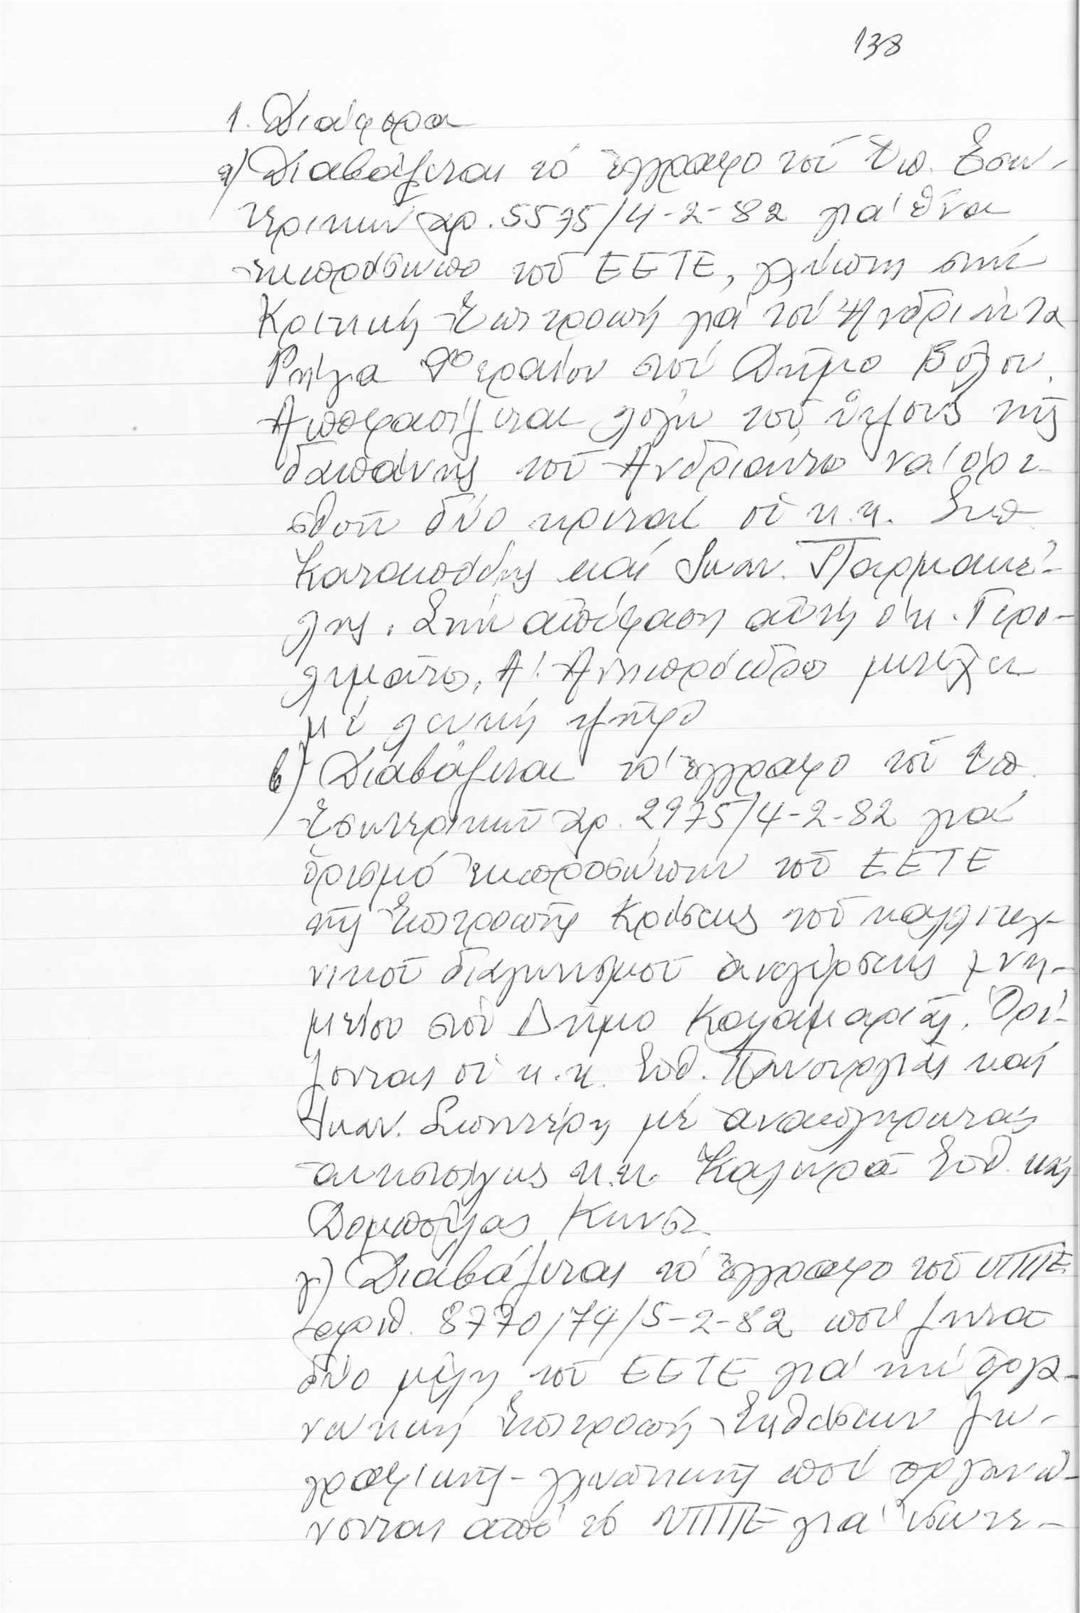 138
1. Διάφορα
α) Διαβάζεται τό ἔγγραφο τοῦ Ὑπ. Ἐσω-
τερικῶν ἀρ. 5575/4-2-82 γιά ἕνα
ἐκπρόσωπο τοῦ ΕΕΤΕ, γλύπτη στήν
Κριτική Ἐπιτροπή γιά τόν Ἀνδριάντα
Ρήγα Φεραίου στό Δῆμο Βόλου.
Ἀποφασίζεται λόγω τοῦ ὕψους τῆς
δαπάνης τοῦ Ἀνδριάντα νά ὁρι-
σθοῦν δύο κριταί οἱ κ.κ. Σπ.
Κατακουζ καί Ἰωαν. Παρμακέ-
λης. Στήν ἀπόφαση αὐτή ὁ κ. Γερο-
λυμάτος, Α! Ἀντιπρόεδρος μετέχει
μέ λευκή ψῆφο
β) Διαβάζεται τό ἔγγραφο τοῦ Ὑπ.
Ἐσωτερικῶν ἀρ. 2975/4-2-82 γιά
ὁρισμό ἐκπροσώπων τοῦ ΕΕΤΕ
τῆς Ἐπιτροπῆς Κρίσεως τοῦ καλλιτεχ-
νικοῦ διαγωνισμοῦ ἀνεγέρσεως μνη-
μείου στό Δῆμο Καλαμαριᾶς. Ὁρί-
ζονται οἱ κ.κ. Εὐθ. Πανουργιᾶς καί
Ἰωαν. με ἀναπληρωτάς
ἀντιστοίχως κ.κ. Καλημερᾶ Εὐθ. καί
Κωνσ.
γ) Διαβάζεται τό ἔγγραφο τοῦ ΥΠΠΕ
ἀριθ. 8770/74/5-2-82 πού ζητάει
δύο μέλη τοῦ ΕΕΤΕ γιά τήν ὀργα-
νωτική Ἐπιτροπή Ἐκθέσεων ζω-
γραφικῆς-γλυπτικῆς πού ὀργανώ-
νονται ἀπό τό ΥΠΠΕ γιά ἐσωτε-